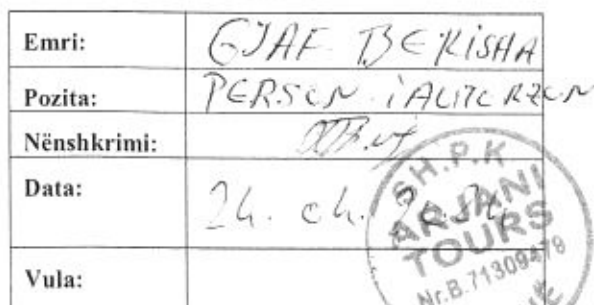 Emri: GJAF BEKISHA
Pozita: PERSON i AUTORZUN
Nënshkrimi:
Data: 24. 04. 2024
Vula:
SH.P.K
ARJANI
TOURS
Nr.B.71309479